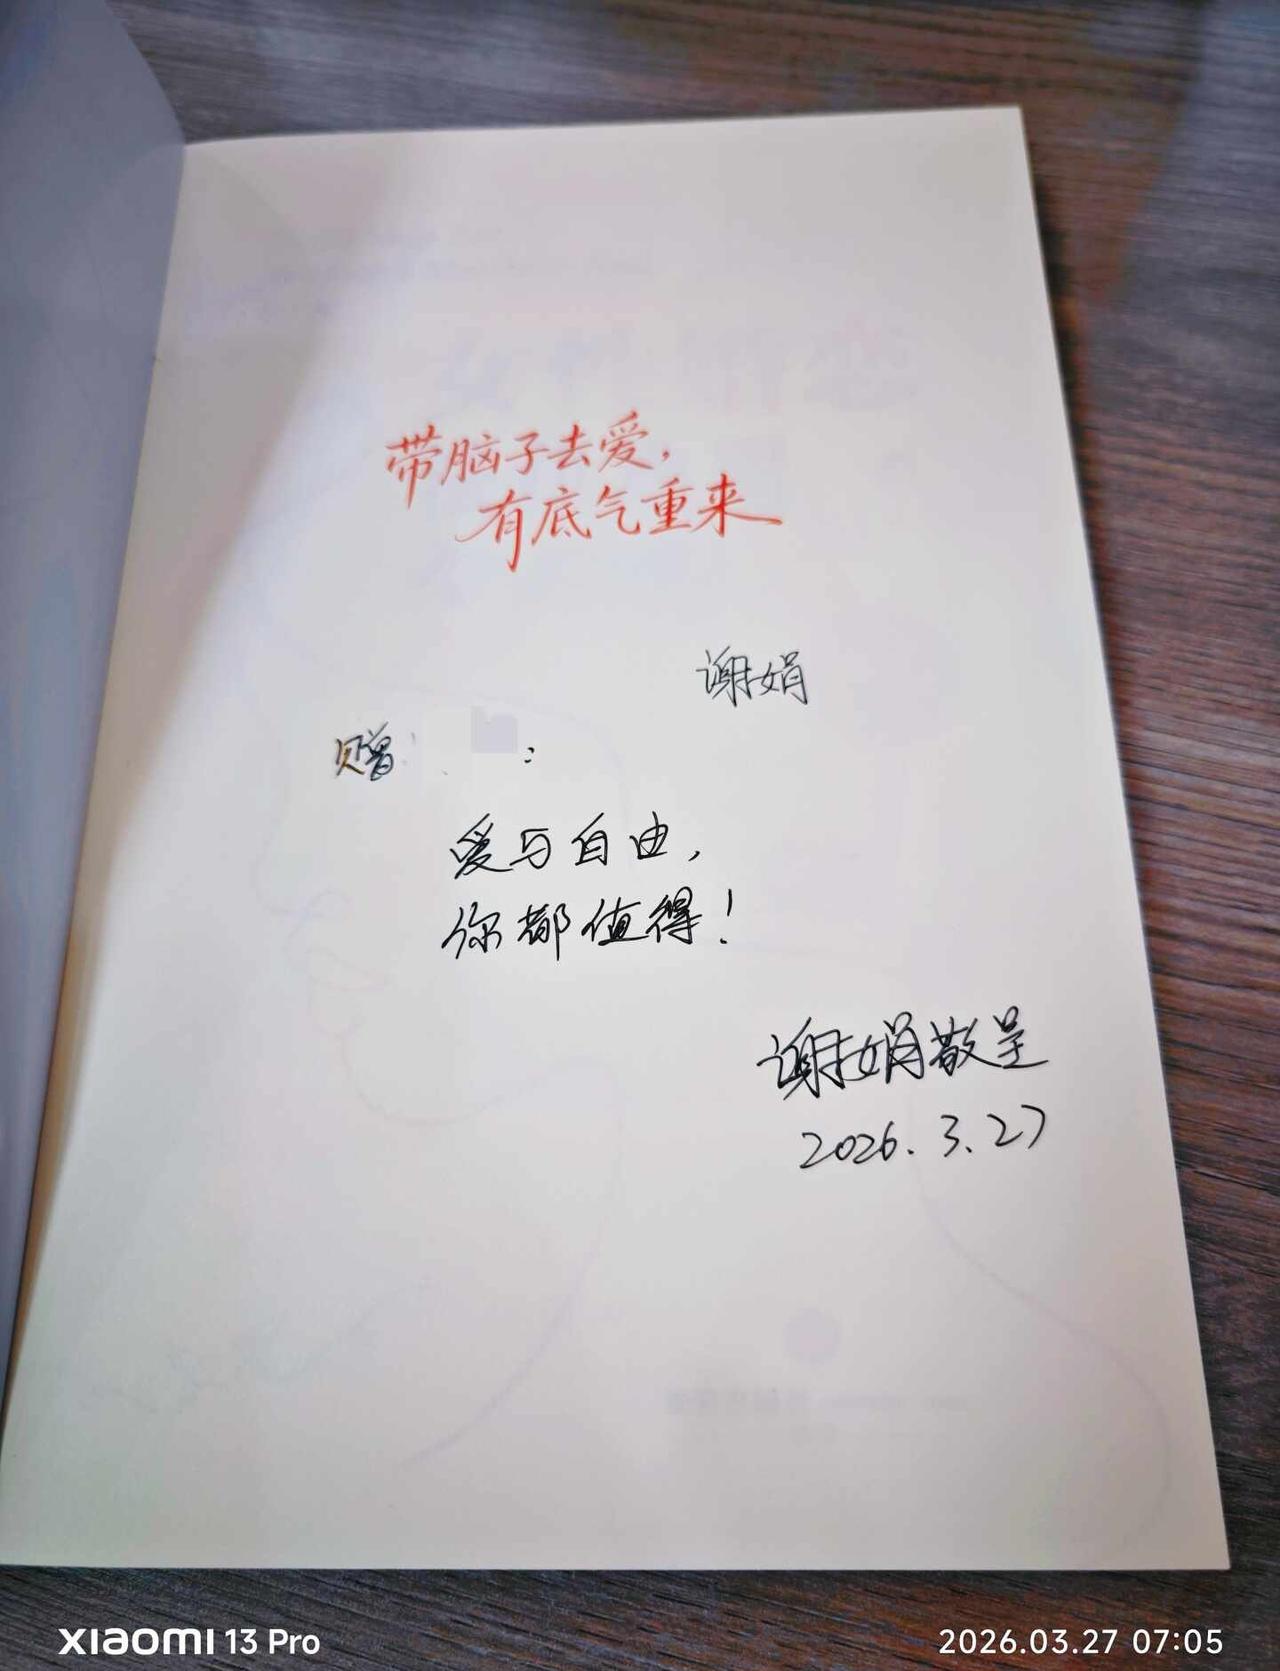 带脑子去爱，
有底气重来
谢娟
赠 ：
爱与自由，
你都值得！
谢娟敬呈
2026.3.27
XIAOMI 13 Pro
2026.03.27 07:05